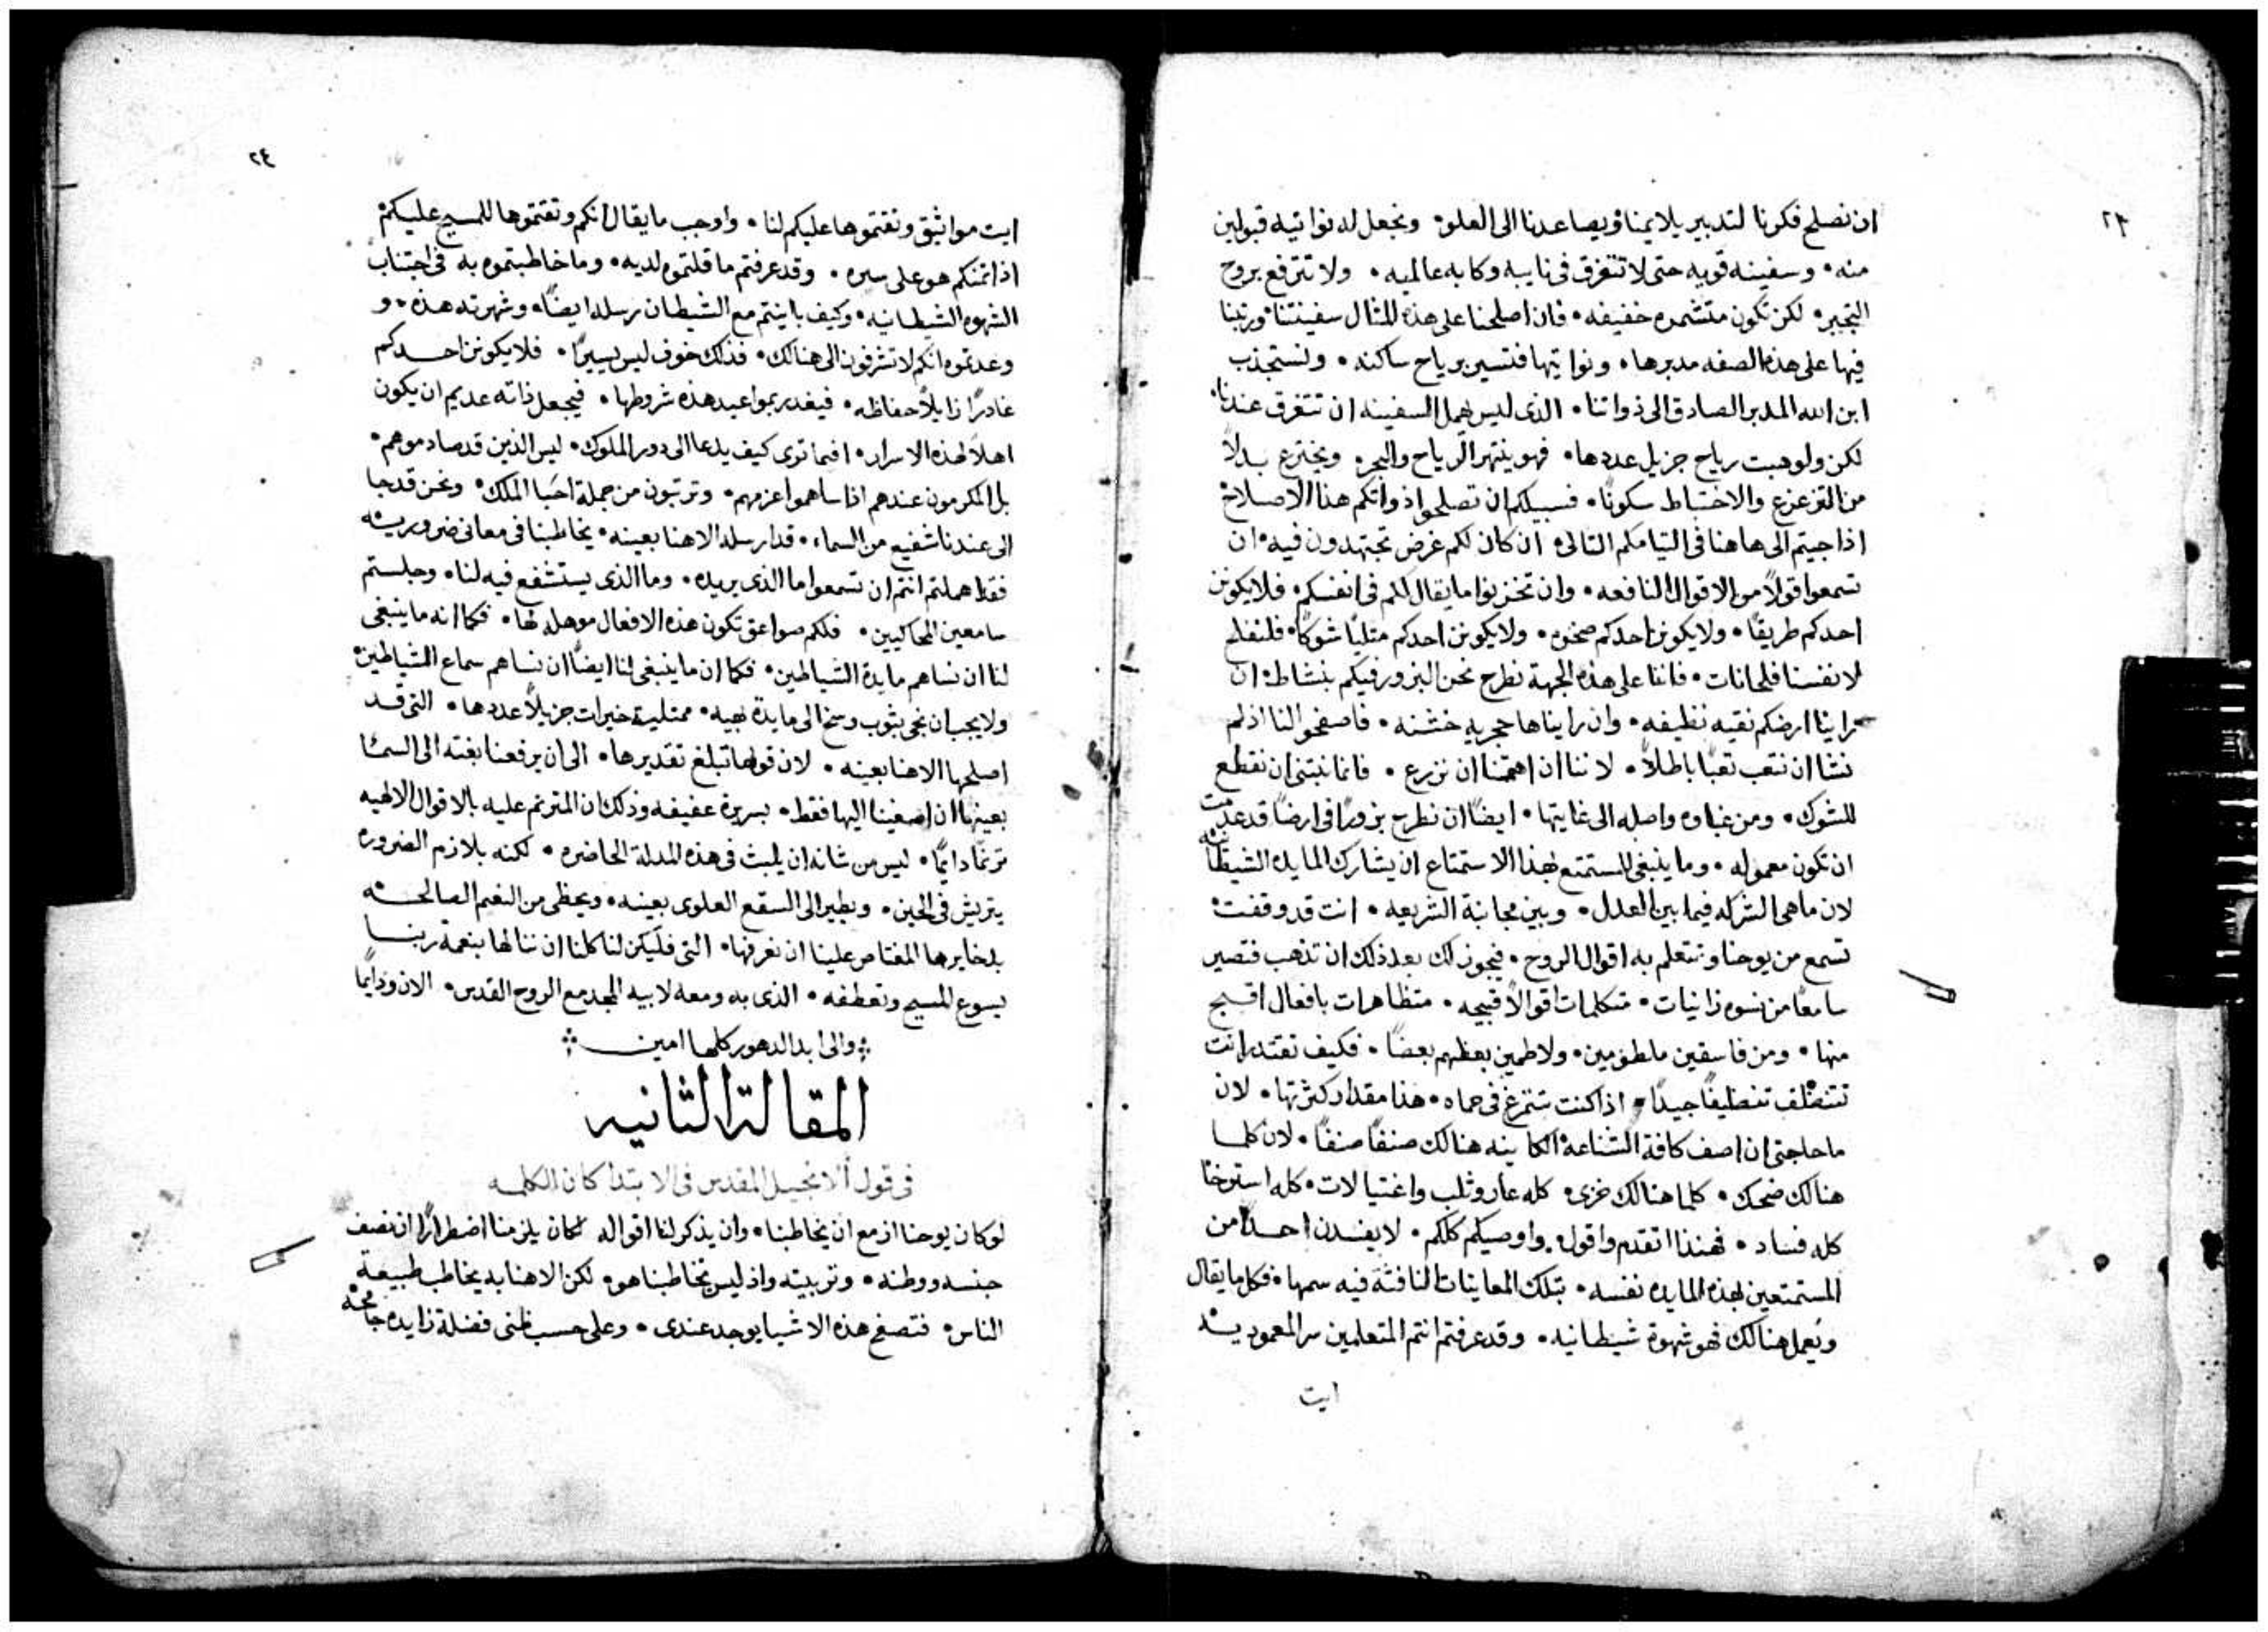 ٢٣
ان نصلح فكرنا لتدبير يلايمنا ويصاعدنا الى العلو۰ ونجعل له نواتيه قبولين
منه۰ وسفينه قويه حتى لا تتغرق في نايبه وكابه عالميه۰ ولا تترفع بروح
التجبر۰ لكن تكون متشمره خفيفه۰ فان اصلحنا على هذه المثال سفينتنا ورتبنا
فيها على هذه الصفه مدبرها۰ ونواتيها فتسير برياح ساكنه۰ ونستجذب
ابن الله المدبر الصادق الى ذواتنا۰ الذى ليس يهمل السفينه ان تتغرق عندنا۰
لكن ولو هبت رياح جزيل عددها۰ فهو ينتهر الرياح والبحر۰ ويخترع بدلاً
من التزعزع والاختباط سكونًا۰ فسبيلكم ان تصلحوا ذواتكم هذا الاصلاح
اذا جيتم الى هاهنا فى التيامكم التالى۰ ان كان لكم غرض تجتهدون فيه۰ ان
تسمعوا قولاً من الاقوال النافعه۰ وان تخزنوا ما يقال لكم فى انفسكم۰ فلا يكونن
احدكم طريقًا۰ ولا يكونن احدكم صخره۰ ولا يكونن احدكم متليًا شوكًا۰ فلنفلح
لانفسنا فلحانات۰ فاننا على هذه الجهة نطرح نحن البزور فيكم بنشاط۰ ان
راينا ارضكم نقيه نظيفه۰ وان رايناها حجريه خشنه۰ فاصفحوا لنا اذ لم
نشا ان نتعب تعبًا باطلاً۰ لاننا ان اهتمنا ان نزرع۰ فانما نبتنى ان نقطع
للشوك۰ ومن غباوه واصله الى غايتها۰ ايضًا ان نطرح بزورًا فى ارضًا قد عدمت
ان تكون معموله۰ وما ينبغى للمستمتع بهذا الاستمتاع ان يشارك المايده الشيطانيه
لان ما هى الشركه فيما بين العدل۰ وبين مجانبة الشريعه۰ انت قد وقفت
تسمع من يوحنا وتتعلم به اقوال الروح۰ فيجوز لك بعد ذلك ان تذهب فتصير
سامعًا من نسوه زانيات۰ متكلمات اقوالاً قبيحه۰ متظاهرات بافعال اقبح
منها۰ ومن فاسقين ملطومين۰ ولاطمين بعظهم بعضًا۰ فكيف تقتدر انت
تتنظف تنظيفًا جيدًا۰ اذا كنت تتمرغ فى حماه۰ هذا مقدار كثرتها۰ لان
ما حاجتى ان اصف كافة الشناعة الكاينه هنالك صنفًا صنفًا۰ لان كلما
هنالك ضحك۰ كلما هنالك خزى۰ كله عار وثلب واغتيالات۰ كله استرخا
كله فساد۰ فهنذا اتقدم واقول۰ واوصيكم كلكم۰ لا يفسدن احدًا من
المستمتعين بهذه المايده نفسه۰ بتلك المعاينات النافثة فيه سمها۰ فكل ما يقال
ويعمل هنالك فهو شهوة شيطانيه۰ وقد عرفتم انتم المتعلمين سر المعموديه
ايت
٢٤
ايت مواثيق وتقتموها عليكم لنا۰ واوجب ما يقال انكم وتقتموها للمسيح عليكم
اذ اتمنكم هو على سره۰ وقد عرفتم ما قلتموه لديه۰ وما خاطبتموه به فى اجتناب
الشهوه الشيطانيه۰ وكيف باينتم مع الشيطان رسله ايضًا۰ وشهرته هذه۰ و
وعدتموه انكم لا تشرفون الى هنالك۰ فذلك خوف ليس يسيرًا۰ فلا يكونن احدكم
غادرًا زايلاً حفاظه۰ فيغدر بمواعيد هذه شروطها۰ فيجعل ذاته عديم ان يكون
اهلاً لهذه الاسرار۰ افما ترى كيف يدعا الى دور الملوك۰ ليس الذين قد صادموهم۰
بل المكرمون عندهم اذا ساهموا عزمهم۰ وترتبون من جملة احبا الملك۰ ونحن قد جا
الى عندنا شفيع من السماء۰ قد ارسله الاهنا بعينه۰ يخاطبنا فى معانى ضروريه
فقد اهملتم انتم ان تسمعوا ما الذى يريده۰ وما الذى يستشفع فيه لنا۰ وجلستم
سامعين المحاكيين۰ فلكم صواعق تكون هذه الافعال موهله لها۰ فكما انه ما ينبغى
لنا ان نساهم مايدة الشياطين۰ فكما ان ما ينبغى لنا ايضًا ان نساهم سماع الشياطين۰
ولا يجب ان نجى بثوب وسخ الى مايدة بهيه۰ ممتلية خيرات جزيلاً عددها۰ التى قد
اصلحها الاهنا بعينه۰ لان قولها تبلغ تقديرها۰ الى ان يرفعنا بغته الى السما
بعينها ان اصغينا اليها فقط۰ بسريرة عفيفه وذلك ان المترنم عليه بالاقوال الالهيه
ترنمًا دايمًا۰ ليس من شانه ان يلبث فى هذه المدلة الحاضره۰ لكنه بلازم الضروره
يتريش فى الحين۰ ويطير الى السقع العلوى بعينه۰ ويحظى من النعيم الصالحه
بدخايرها المغتاص علينا ان نعرفها۰ التى فليكن لنا كلنا ان ننالها بنعمة ربنا
يسوع المسيح وتعطفه۰ الذى به ومعه لابيه المجد مع الروح القدس۰ الان ودايمًا
والى ابد الدهور كلها امين
المقالة الثانيه
فى قول الانجيل المقدس فى الابتدا كان الكلمه
لو كان يوحنا ازمع ان يخاطبنا۰ وان يذكر لنا اقواله لكان يلزمنا اضطرارًا ان نصف
جنسه ووطنه۰ وتربيته واذ ليس يخاطبنا هو۰ لكن الاهنا به يخاطب طبيعة
الناس۰ فتصفح هذه الاشيا يوجد عندى۰ وعلى حسب ظنى فضلة زايده جامحه